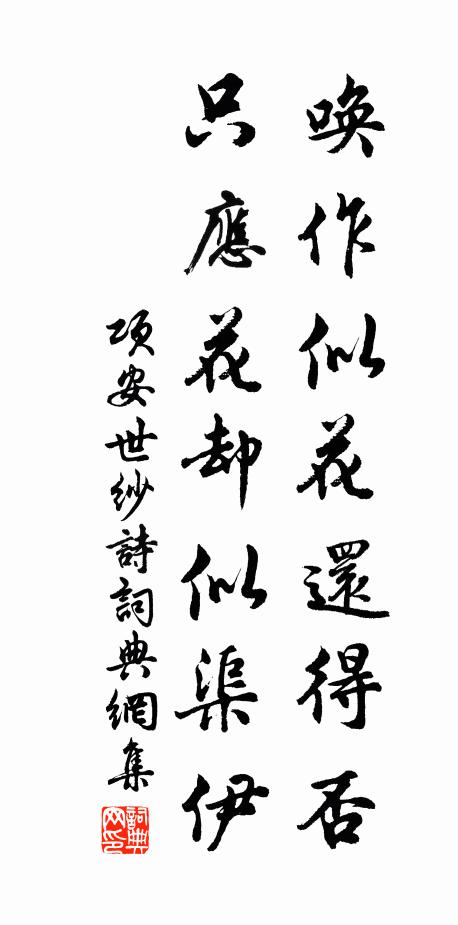 喚作似花還得否
只應花却似渠伊
項安世紗詩詞典網集
詞典網印